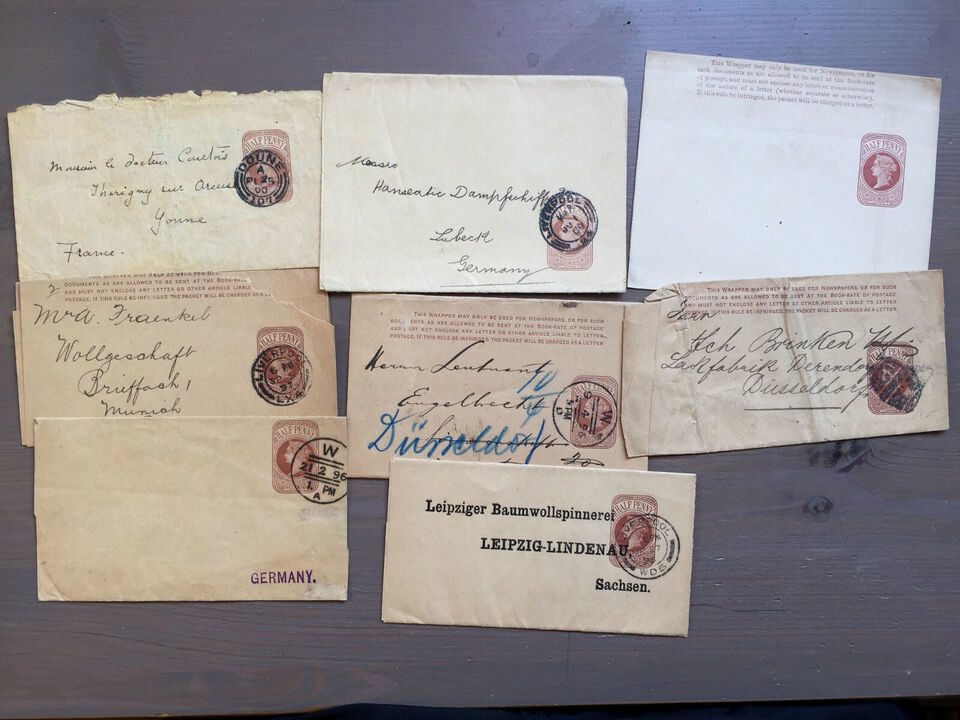 HALF PENNY
DOUNE
A
90
107
Monsieur le docteur
Thorigny sur
Yonne
France.
Messrs
Hanseatic Dampfschiff
Lubeck
Germany
LIVERPOOL
This Wrapper may only be used for Newspapers, or for
such documents as are allowed to be sent at the Book-rate
of postage, and must not enclose any letter or communication
of the nature of a letter (whether separate or otherwise).
If this rule be infringed, the packet will be charged as a letter.
HALF PENNY
THIS WRAPPER MAY ONLY BE USED FOR
DOCUMENTS AS ARE ALLOWED TO BE SENT AT THE BOOK-RATE
AND MUST NOT ENCLOSE ANY LETTER OR OTHER ARTICLE LIABLE
POSTAGE. IF THIS RULE BE INFRINGED THE PACKET WILL BE CHARGED AS A
Fraenkel
Wollgeschaft
Brieffach 1
Munich
LIVERPOOL
LX4
THIS WRAPPER MAY ONLY BE USED FOR NEWSPAPERS, OR FOR SUCH
DOCUMENTS AS ARE ALLOWED TO BE SENT AT THE BOOK-RATE OF POSTAGE,
AND MUST NOT ENCLOSE ANY LETTER OR OTHER ARTICLE LIABLE
IF THIS RULE BE INFRINGED THE PACKET WILL BE CHARGED AS A LETTER
Herrn Lieutnant
Engelbrecht
Düsseldorf
HALF PENNY
W
PM
D
THIS WRAPPER MAY ONLY BE USED FOR NEWSPAPERS, OR FOR SUCH
DOCUMENTS AS ARE ALLOWED TO BE SENT AT THE BOOK-RATE OF
AND MUST NOT ENCLOSE ANY LETTER OR OTHER ARTICLE LIABLE
POSTAGE. IF THIS RULE BE INFRINGED THE PACKET WILL BE CHARGED AS A LETTER
Herrn
Hch Brinken
Derendorf
Düsseldorf
HALF PENNY
HALF PENNY
W
21 2 96
1. PM
A
GERMANY.
Leipziger Baumwollspinnerei
LEIPZIG-LINDENAU,
Sachsen.
HALF PENNY
LIVERPOOL